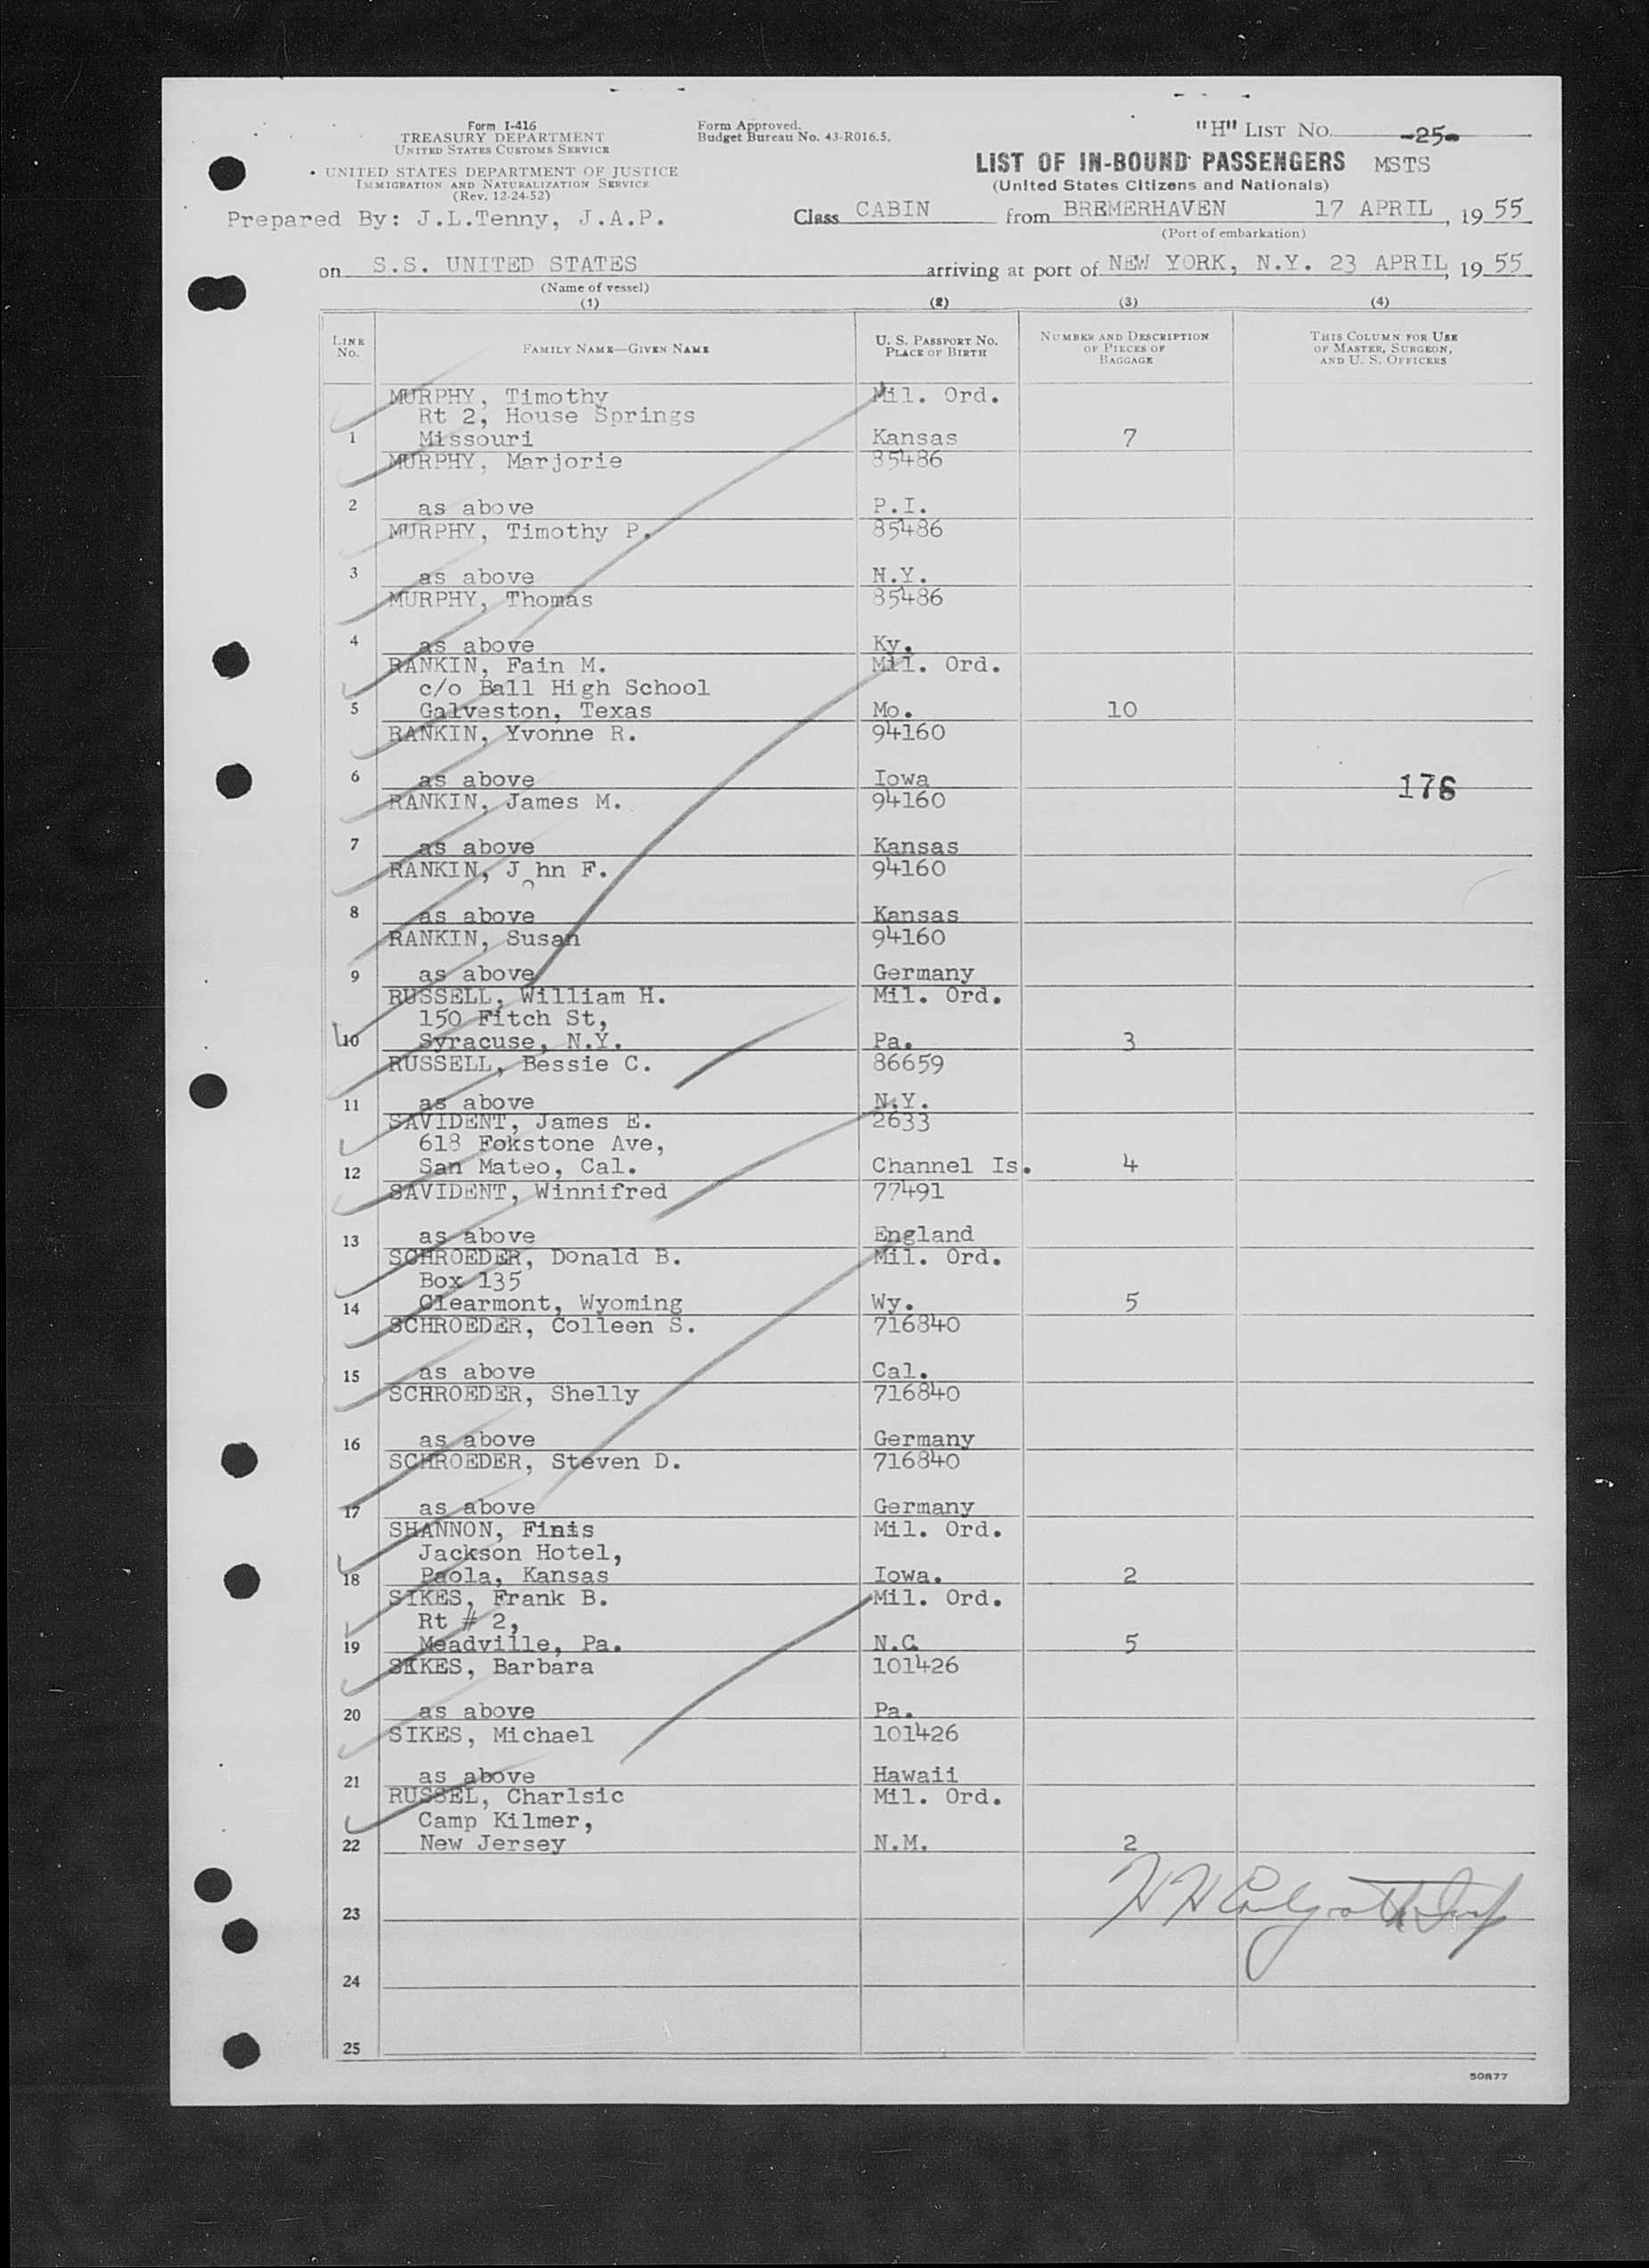 Form I-416
TREASURY DEPARTMENT
UNITED STATES CUSTOMS SERVICE
UNITED STATES DEPARTMENT OF JUSTICE
IMMIGRATION AND NATURALIZATION SERVICE
(Rev. 12-24-52)
Prepared By: J.L.Tenny, J.A.P.
Form Approved.
Budget Bureau No. 43-R016.5.
"H" LIST NO. -25-
LIST OF IN-BOUND PASSENGERS MSTS
(United States Citizens and Nationals)
Class CABIN from BREMERHAVEN 17 APRIL, 19 55
(Port of embarkation)
on S.S. UNITED STATES arriving at port of NEW YORK, N.Y. 23 APRIL, 19 55
(Name of vessel)
(1) (2) (3) (4)
LINE NO. FAMILY NAME—GIVEN NAME U. S. PASSPORT NO. PLACE OF BIRTH NUMBER AND DESCRIPTION OF PIECES OF BAGGAGE THIS COLUMN FOR USE OF MASTER, SURGEON, AND U. S. OFFICERS
MURPHY, Timothy Mil. Ord.
Rt 2, House Springs
1 Missouri Kansas 7
MURPHY, Marjorie 85486
2 as above P.I.
MURPHY, Timothy P. 85486
3 as above N.Y.
MURPHY, Thomas 85486
4 as above Ky.
RANKIN, Fain M. Mil. Ord.
c/o Ball High School
5 Galveston, Texas Mo. 10
RANKIN, Yvonne R. 94160
6 as above Iowa 176
RANKIN, James M. 94160
7 as above Kansas
RANKIN, John F. 94160
8 as above Kansas
RANKIN, Susan 94160
9 as above Germany
RUSSELL, William H. Mil. Ord.
150 Fitch St,
10 Syracuse, N.Y. Pa. 3
RUSSELL, Bessie C. 86659
11 as above N.Y.
SAVIDENT, James E. 2633
618 Fokstone Ave,
12 San Mateo, Cal. Channel Is. 4
SAVIDENT, Winnifred 77491
13 as above England
SCHROEDER, Donald B. Mil. Ord.
Box 135
14 Clearmont, Wyoming Wy. 5
SCHROEDER, Colleen S. 716840
15 as above Cal.
SCHROEDER, Shelly 716840
16 as above Germany
SCHROEDER, Steven D. 716840
17 as above Germany
SHANNON, Finis Mil. Ord.
Jackson Hotel,
18 Paola, Kansas Iowa. 2
SIKES, Frank B. Mil. Ord.
Rt # 2,
19 Meadville, Pa. N.C. 5
SIKES, Barbara 101426
20 as above Pa.
SIKES, Michael 101426
21 as above Hawaii
RUSSEL, Charlsic Mil. Ord.
Camp Kilmer,
22 New Jersey N.M. 2
23
24
25
50877